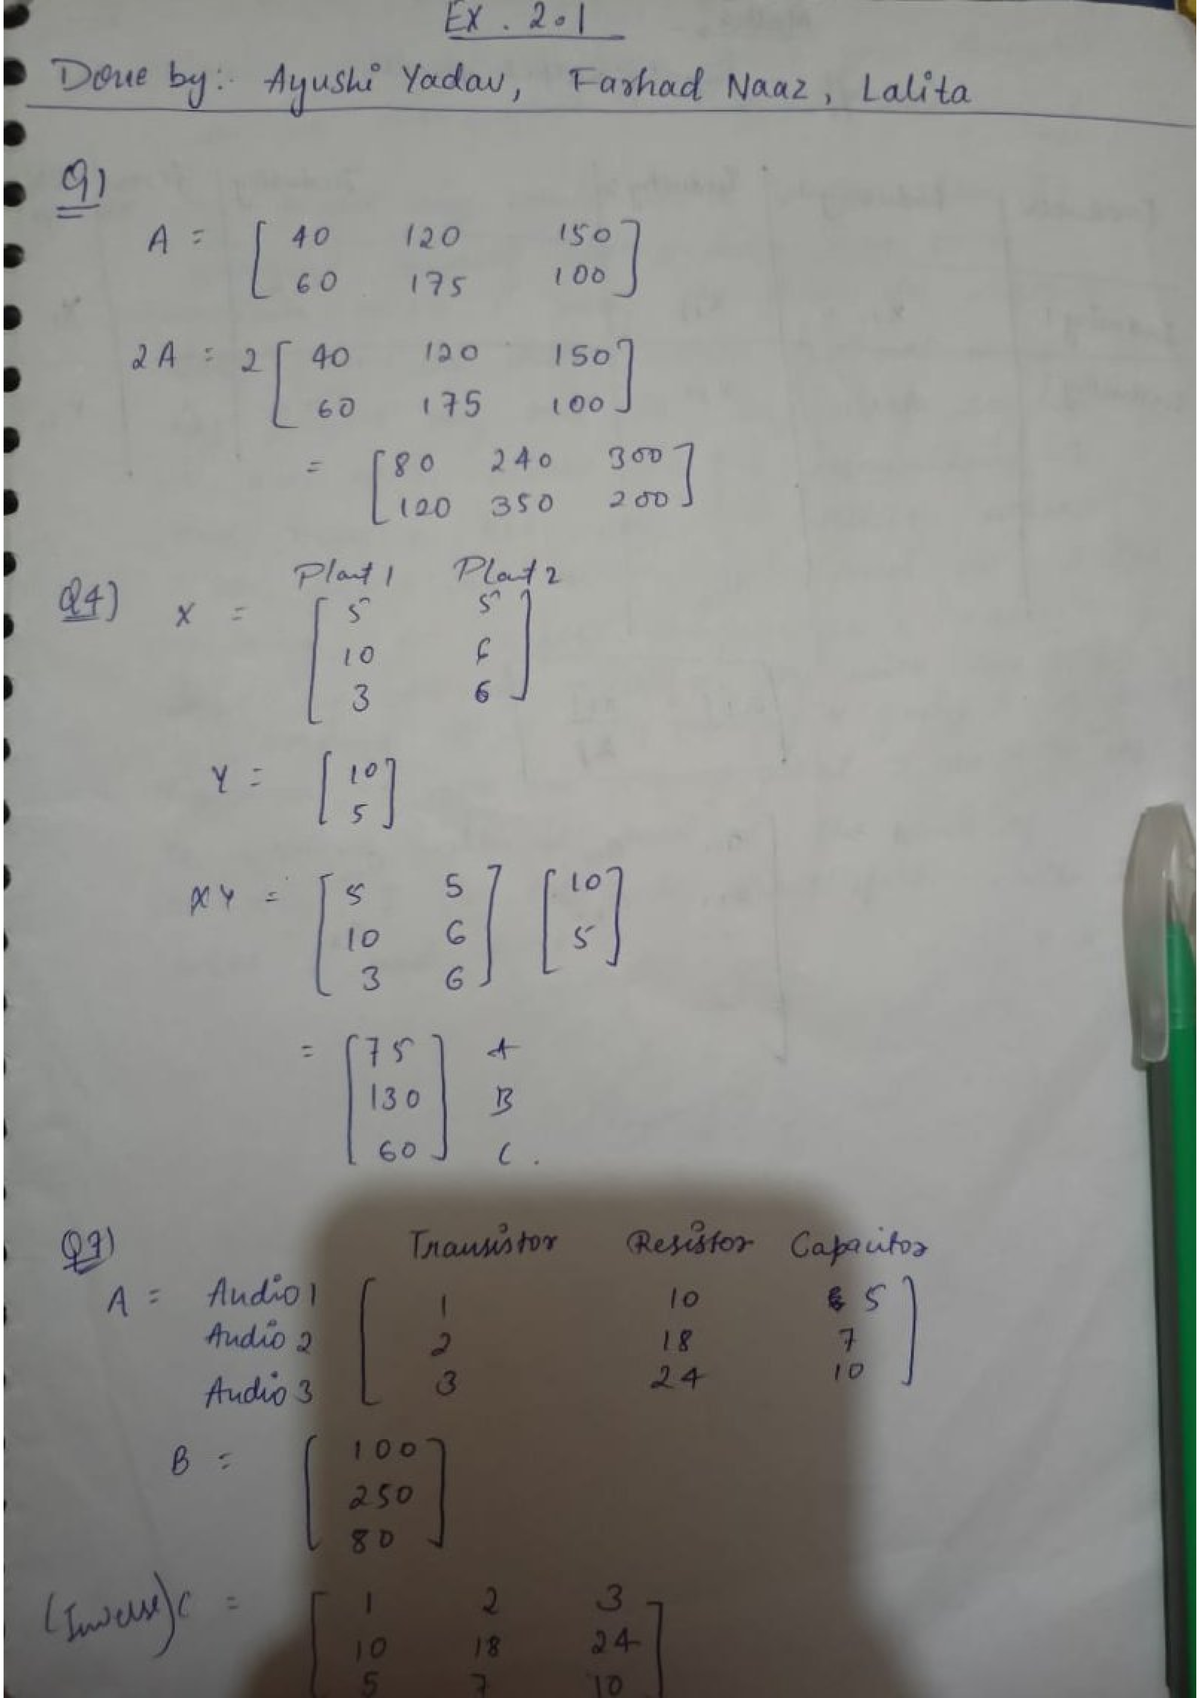 Ex. 2.1
Done by:- Ayushi Yadav, Farhad Naaz, Lalita
Q1
A = [ 40 120 150 ]
[ 60 175 100 ]
2A = 2 [ 40 120 150 ]
[ 60 175 100 ]
= [ 80 240 300 ]
[ 120 350 200 ]
Plant 1 Plant 2
Q4) X = [ 5 5 ]
[ 10 6 ]
[ 3 6 ]
Y = [ 10 ]
[ 5 ]
XY = [ 5 5 ] [ 10 ]
[ 10 6 ] [ 5 ]
[ 3 6 ]
= [ 75 ] A
[ 130 ] B
[ 60 ] C.
Q7) Transistor Resistor Capacitor
A = Audio 1 [ 1 10 5 ]
Audio 2 [ 2 18 7 ]
Audio 3 [ 3 24 10 ]
B = [ 100 ]
[ 250 ]
[ 80 ]
(Inverse) C = [ 1 2 3 ]
[ 10 18 24 ]
[ 5 7 10 ]